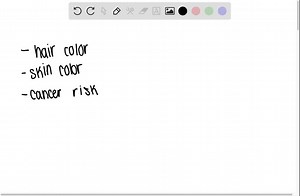 - hair color
- skin color
- cancer risk